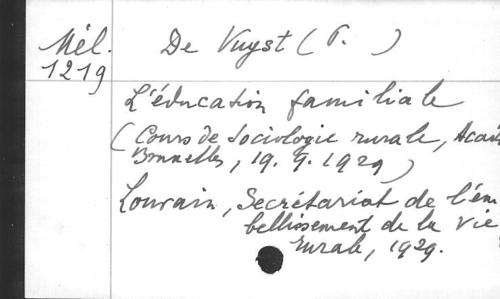 Mél. De Vuyst (P. )
1219
L'éducation familiale
(Cours de Sociologie rurale, Acad
Bruxelles, 19. 9. 1929)
Louvain, Secrétariat de l'em
bellissement de la vie
rurale, 1929.